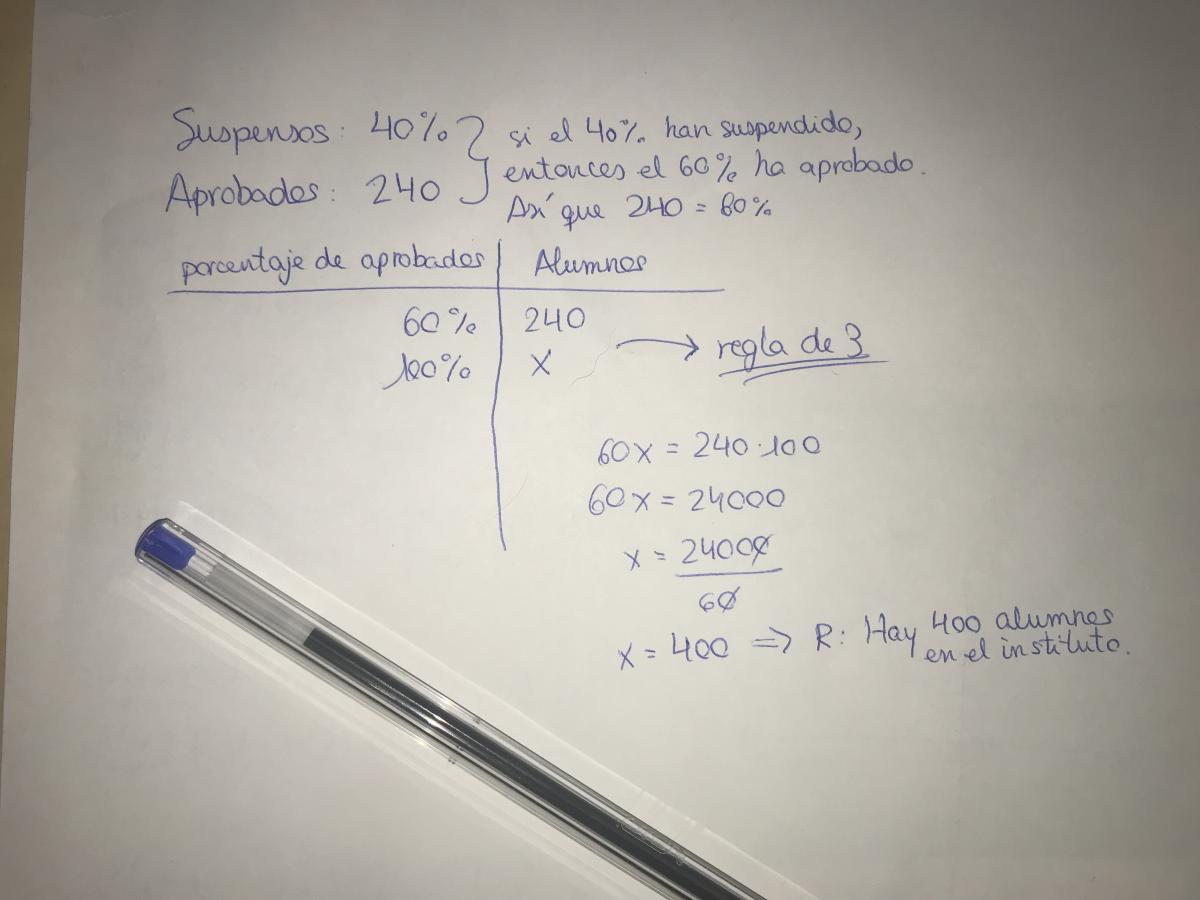 Suspensos: 40%
Aprobados: 240
si el 40% han suspendido,
entonces el 60% ha aprobado.
Así que 240 = 60%
porcentaje de aprobados | Alumnos
60% | 240
100% | X
→ regla de 3
60x = 240·100
60x = 24000
x = 24000
60
x = 400 => R: Hay 400 alumnos
en el instituto.